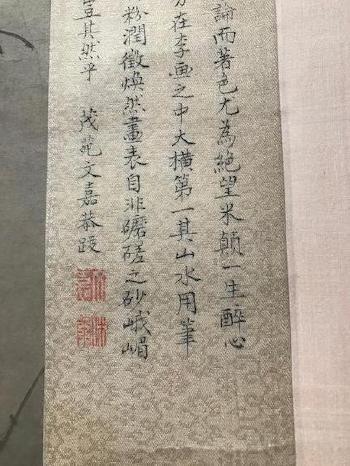 論而著色尤為絕望米顛一生醉心
在李画之中大橫第一其山水用筆
粉潤徵煥然畫表自非礳磋之砂峨嵋
豈其然乎 茂苑文嘉恭跋